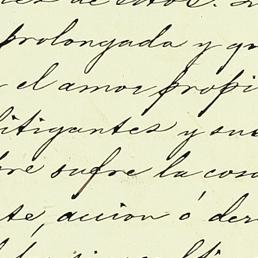 de
prolongada y qu
el amor propi
litigantes y sus
re sufre la cosa
te, accion ó der